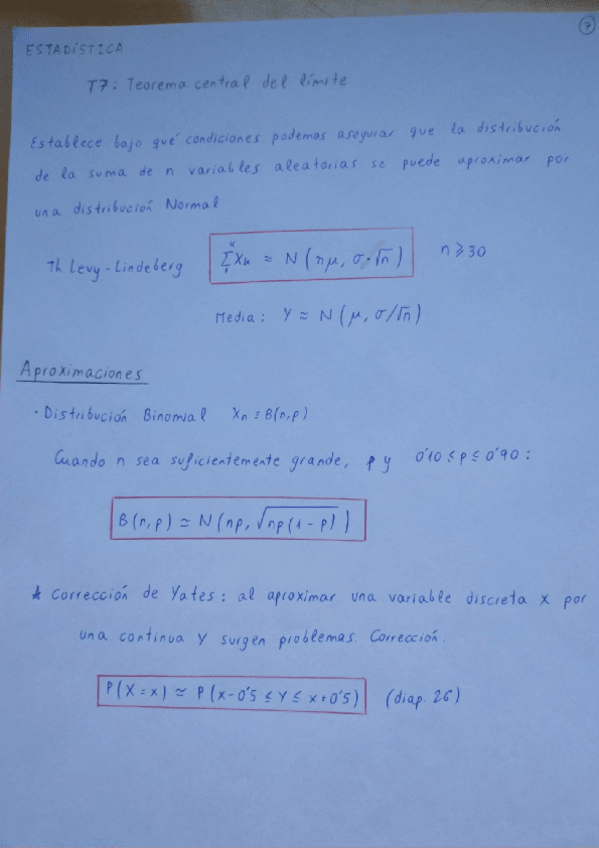 7
ESTADÍSTICA
T7: Teorema central del límite
Establece bajo qué condiciones podemos asegurar que la distribución
de la suma de n variables aleatorias se puede aproximar por
una distribución Normal
Th. Levy-Lindeberg Σ Xn ≈ N(nμ, σ·√n) n ≥ 30
Media: Y ≈ N(μ, σ/√n)
Aproximaciones
· Distribución Binomial Xn ≡ B(n,p)
Cuando n sea suficientemente grande, y 0'10 ≤ p ≤ 0'90:
B(n,p) ≃ N(np, √np(1-p))
* Corrección de Yates: al aproximar una variable discreta X por
una continua Y surgen problemas. Corrección:
P(X=x) ≃ P(x-0'5 ≤ Y ≤ x+0'5) (diap. 26)